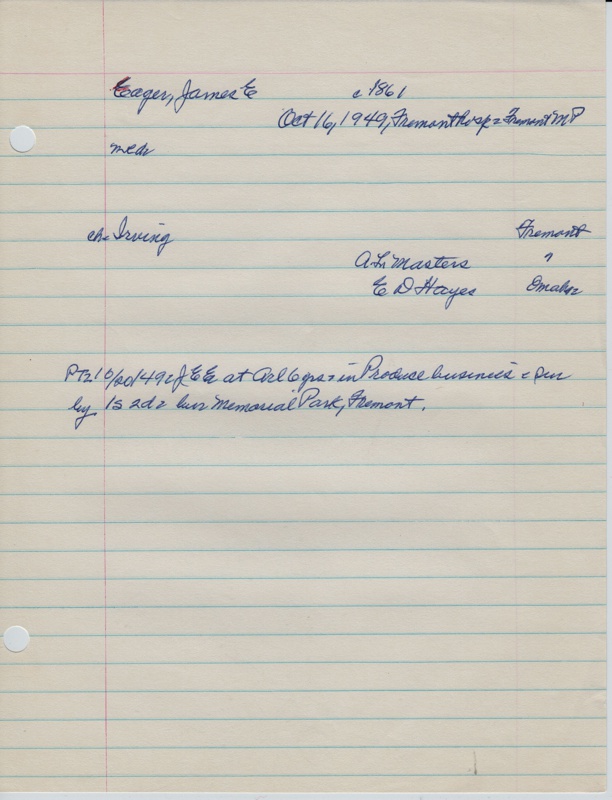 Eager, James E c 1861
Oct 16, 1949, Fremont Hosp = Fremont MP
ch = Irving Fremont
Masters "
E D Hayes Omaha
PT = 10/20/49 = J E E at Arl 6 yrs = in Produce business = sur
by 1s 2d = bur Memorial Park, Fremont.